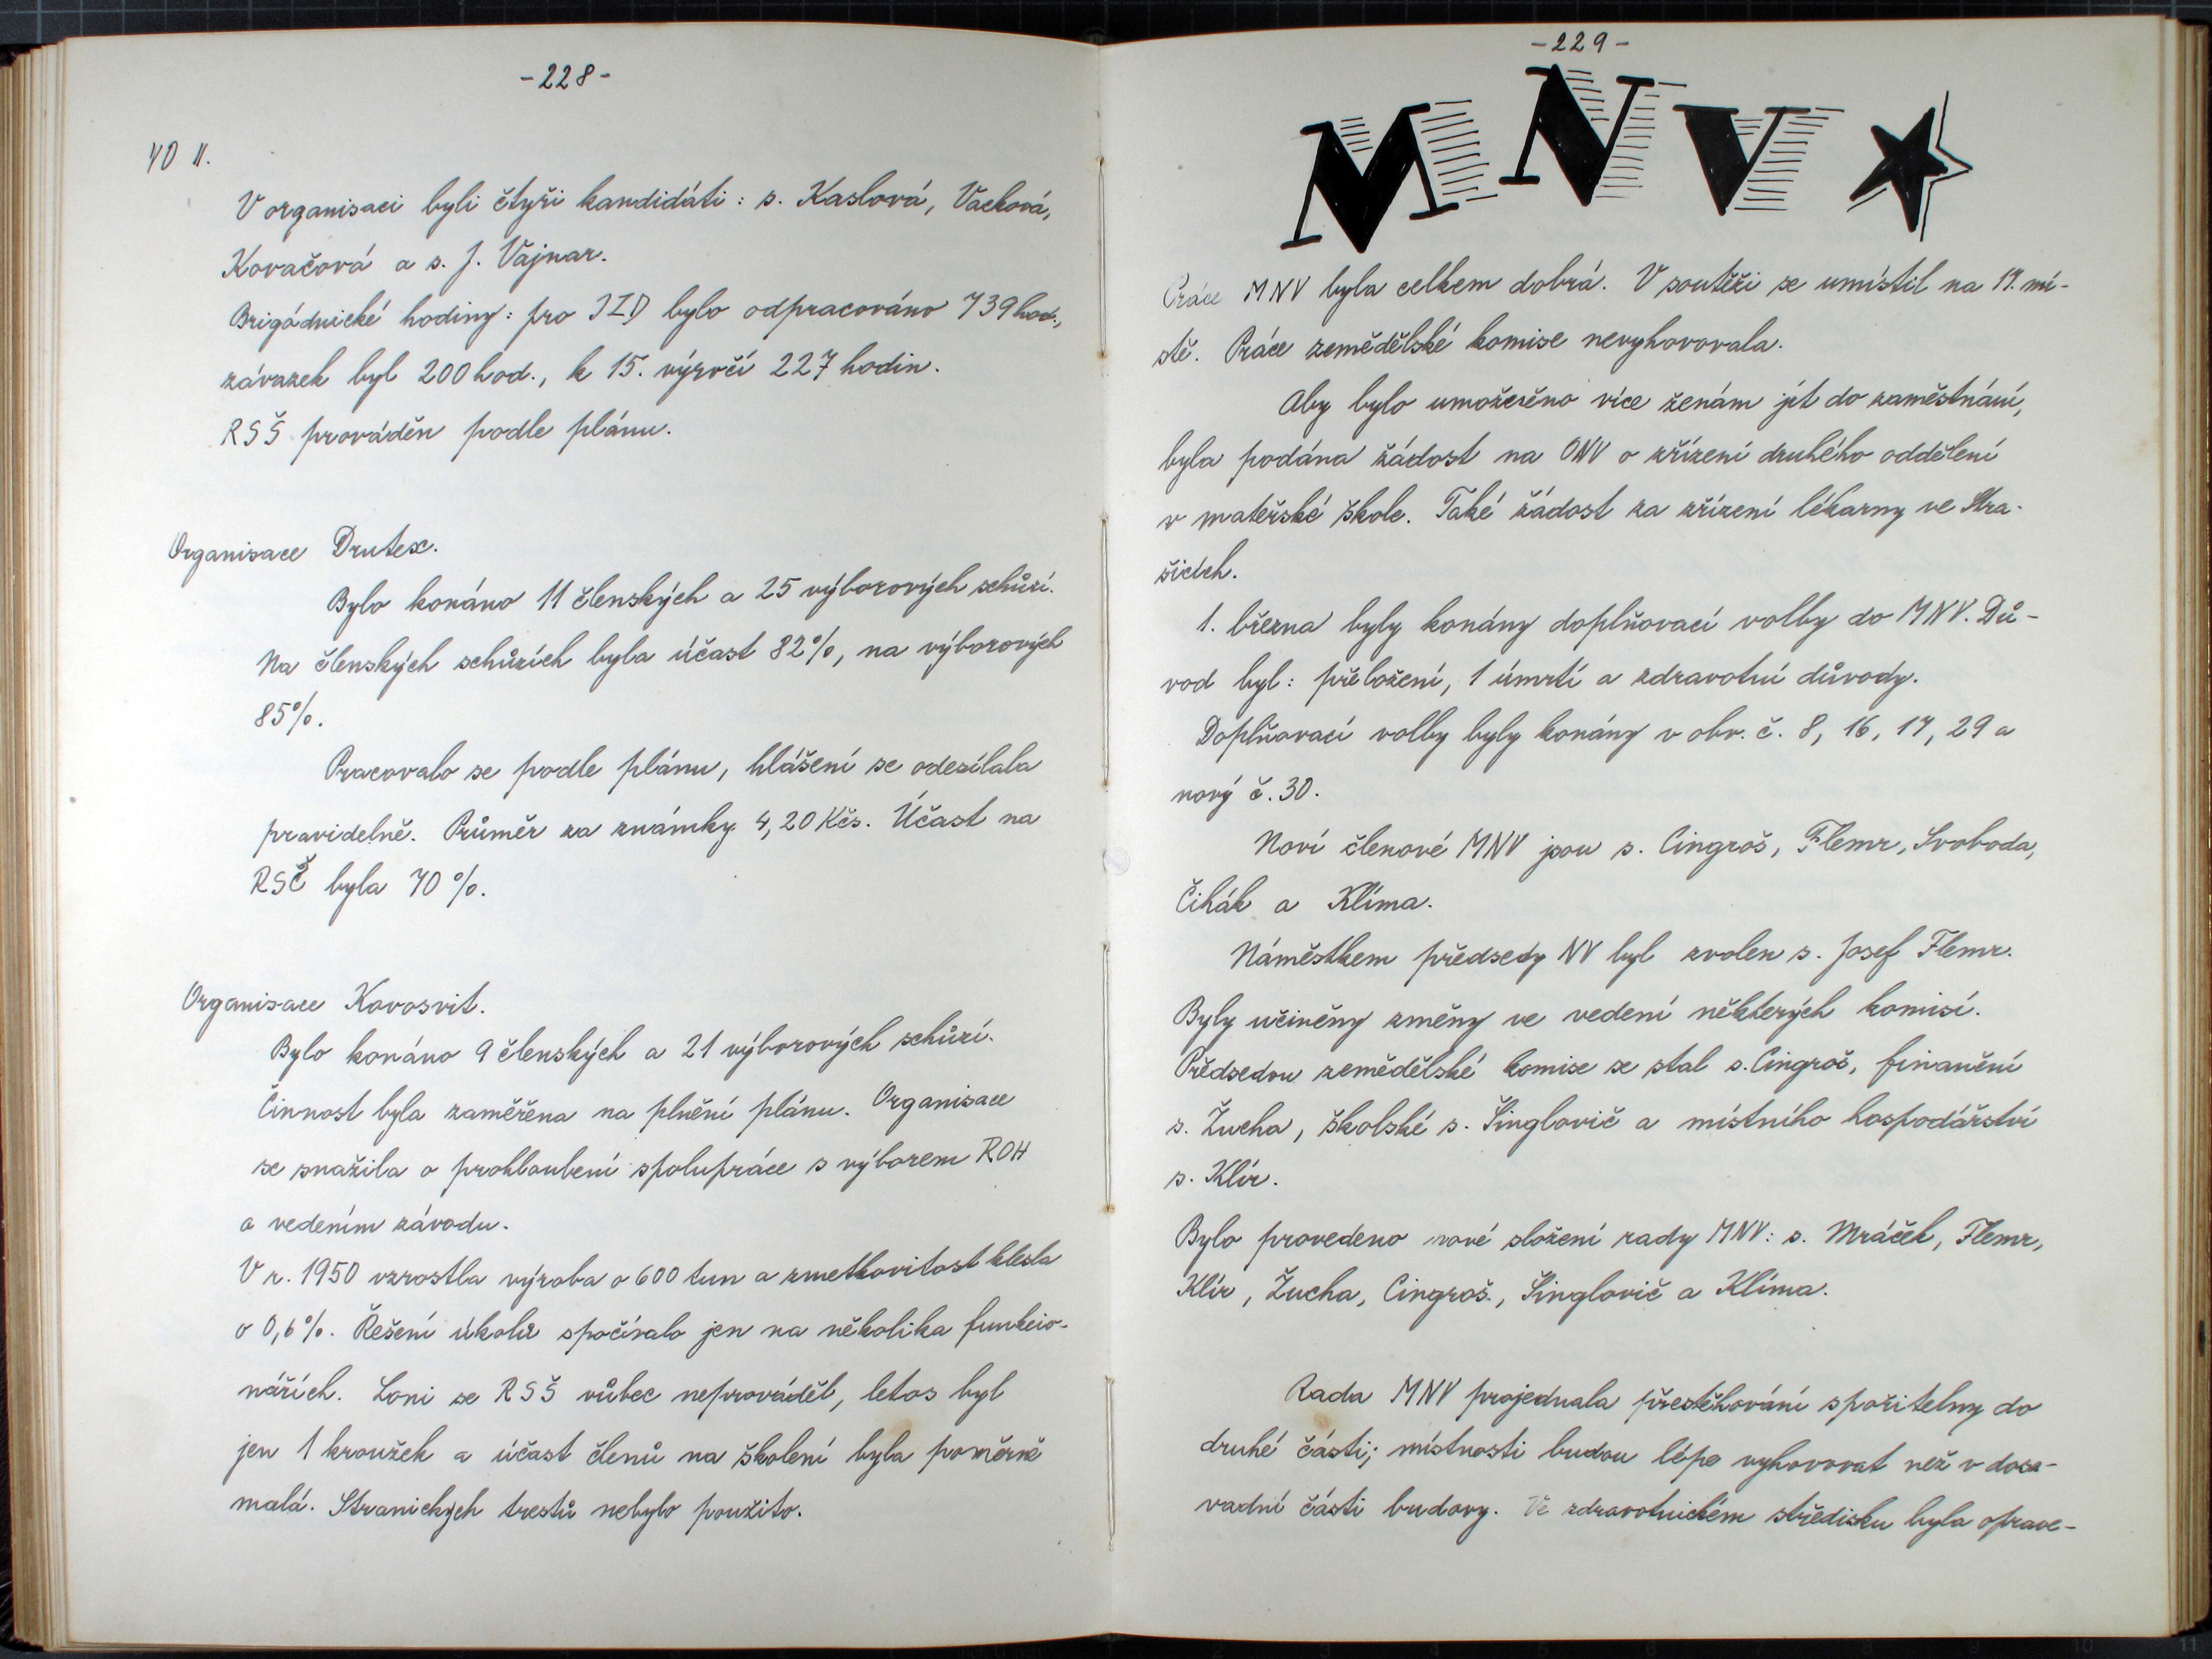 -228-
VO II.
V organisaci byli čtyři kandidáti: s. Kaslová, Vacková,
Kovačová a s. J. Vajnar.
Brigádnické hodiny: pro JZD bylo odpracováno 739 hod.,
závazek byl 200 hod., k 15. výročí 227 hodin.
RSŠ prováděn podle plánu.
Organisace Drutex.
Bylo konáno 11 členských a 25 výborových schůzí.
Na členských schůzích byla účast 82%, na výborových
85%.
Pracovalo se podle plánu, hlášení se odesílala
pravidelně. Průměr za známky 4,20 Kčs. Účast na
RSŠ byla 70%.
Organisace Kovosvit.
Bylo konáno 9 členských a 21 výborových schůzí.
Činnost byla zaměřena na plnění plánu. Organisace
se snažila o prohloubení spolupráce s výborem ROH
a vedením závodu.
V r. 1950 vzrostla výroba o 600 tun a zmetkovitost klesla
o 0,6%. Řešení úkolů spočívalo jen na několika funkcio-
nářích. Loni se RSŠ vůbec neprováděl, letos byl
jen 1 kroužek a účast členů na školení byla poměrně
malá. Stranických trestů nebylo použito.
-229-
MNV
Práce MNV byla celkem dobrá. V soutěži se umístil na 17. mí-
stě. Práce zemědělské komise nevyhovovala.
Aby bylo umožněno více ženám jít do zaměstnání,
byla podána žádost na ONV o zřízení druhého oddělení
v mateřské škole. Také žádost za zřízení lékarny ve Stra-
šicích.
1. března byly konány doplňovací volby do MNV. Dů-
vod byl: přeložení, 1 úmrtí a zdravotní důvody.
Doplňovací volby byly konány v obv. č. 8, 16, 17, 29 a
nový č. 30.
Noví členové MNV jsou s. Cingroš, Flemr, Svoboda,
Čihák a Klíma.
Náměstkem předsedy NV byl zvolen s. Josef Flemr.
Byly učiněny změny ve vedení některých komisí.
Předsedou zemědělské komise se stal s. Cingroš, finanční
s. Žucha, školské s. Šinglovič a místního hospodářství
s. Klír.
Bylo provedeno nové složení rady MNV: s. Mráček, Flemr,
Klír, Žucha, Cingroš, Šinglovič a Klíma.
Rada MNV projednala přestěhování spořitelny do
druhé části; místnosti budou lépe vyhovovat než v dosa-
vadní části budovy. Ve zdravotnickém středisku byla oprave-